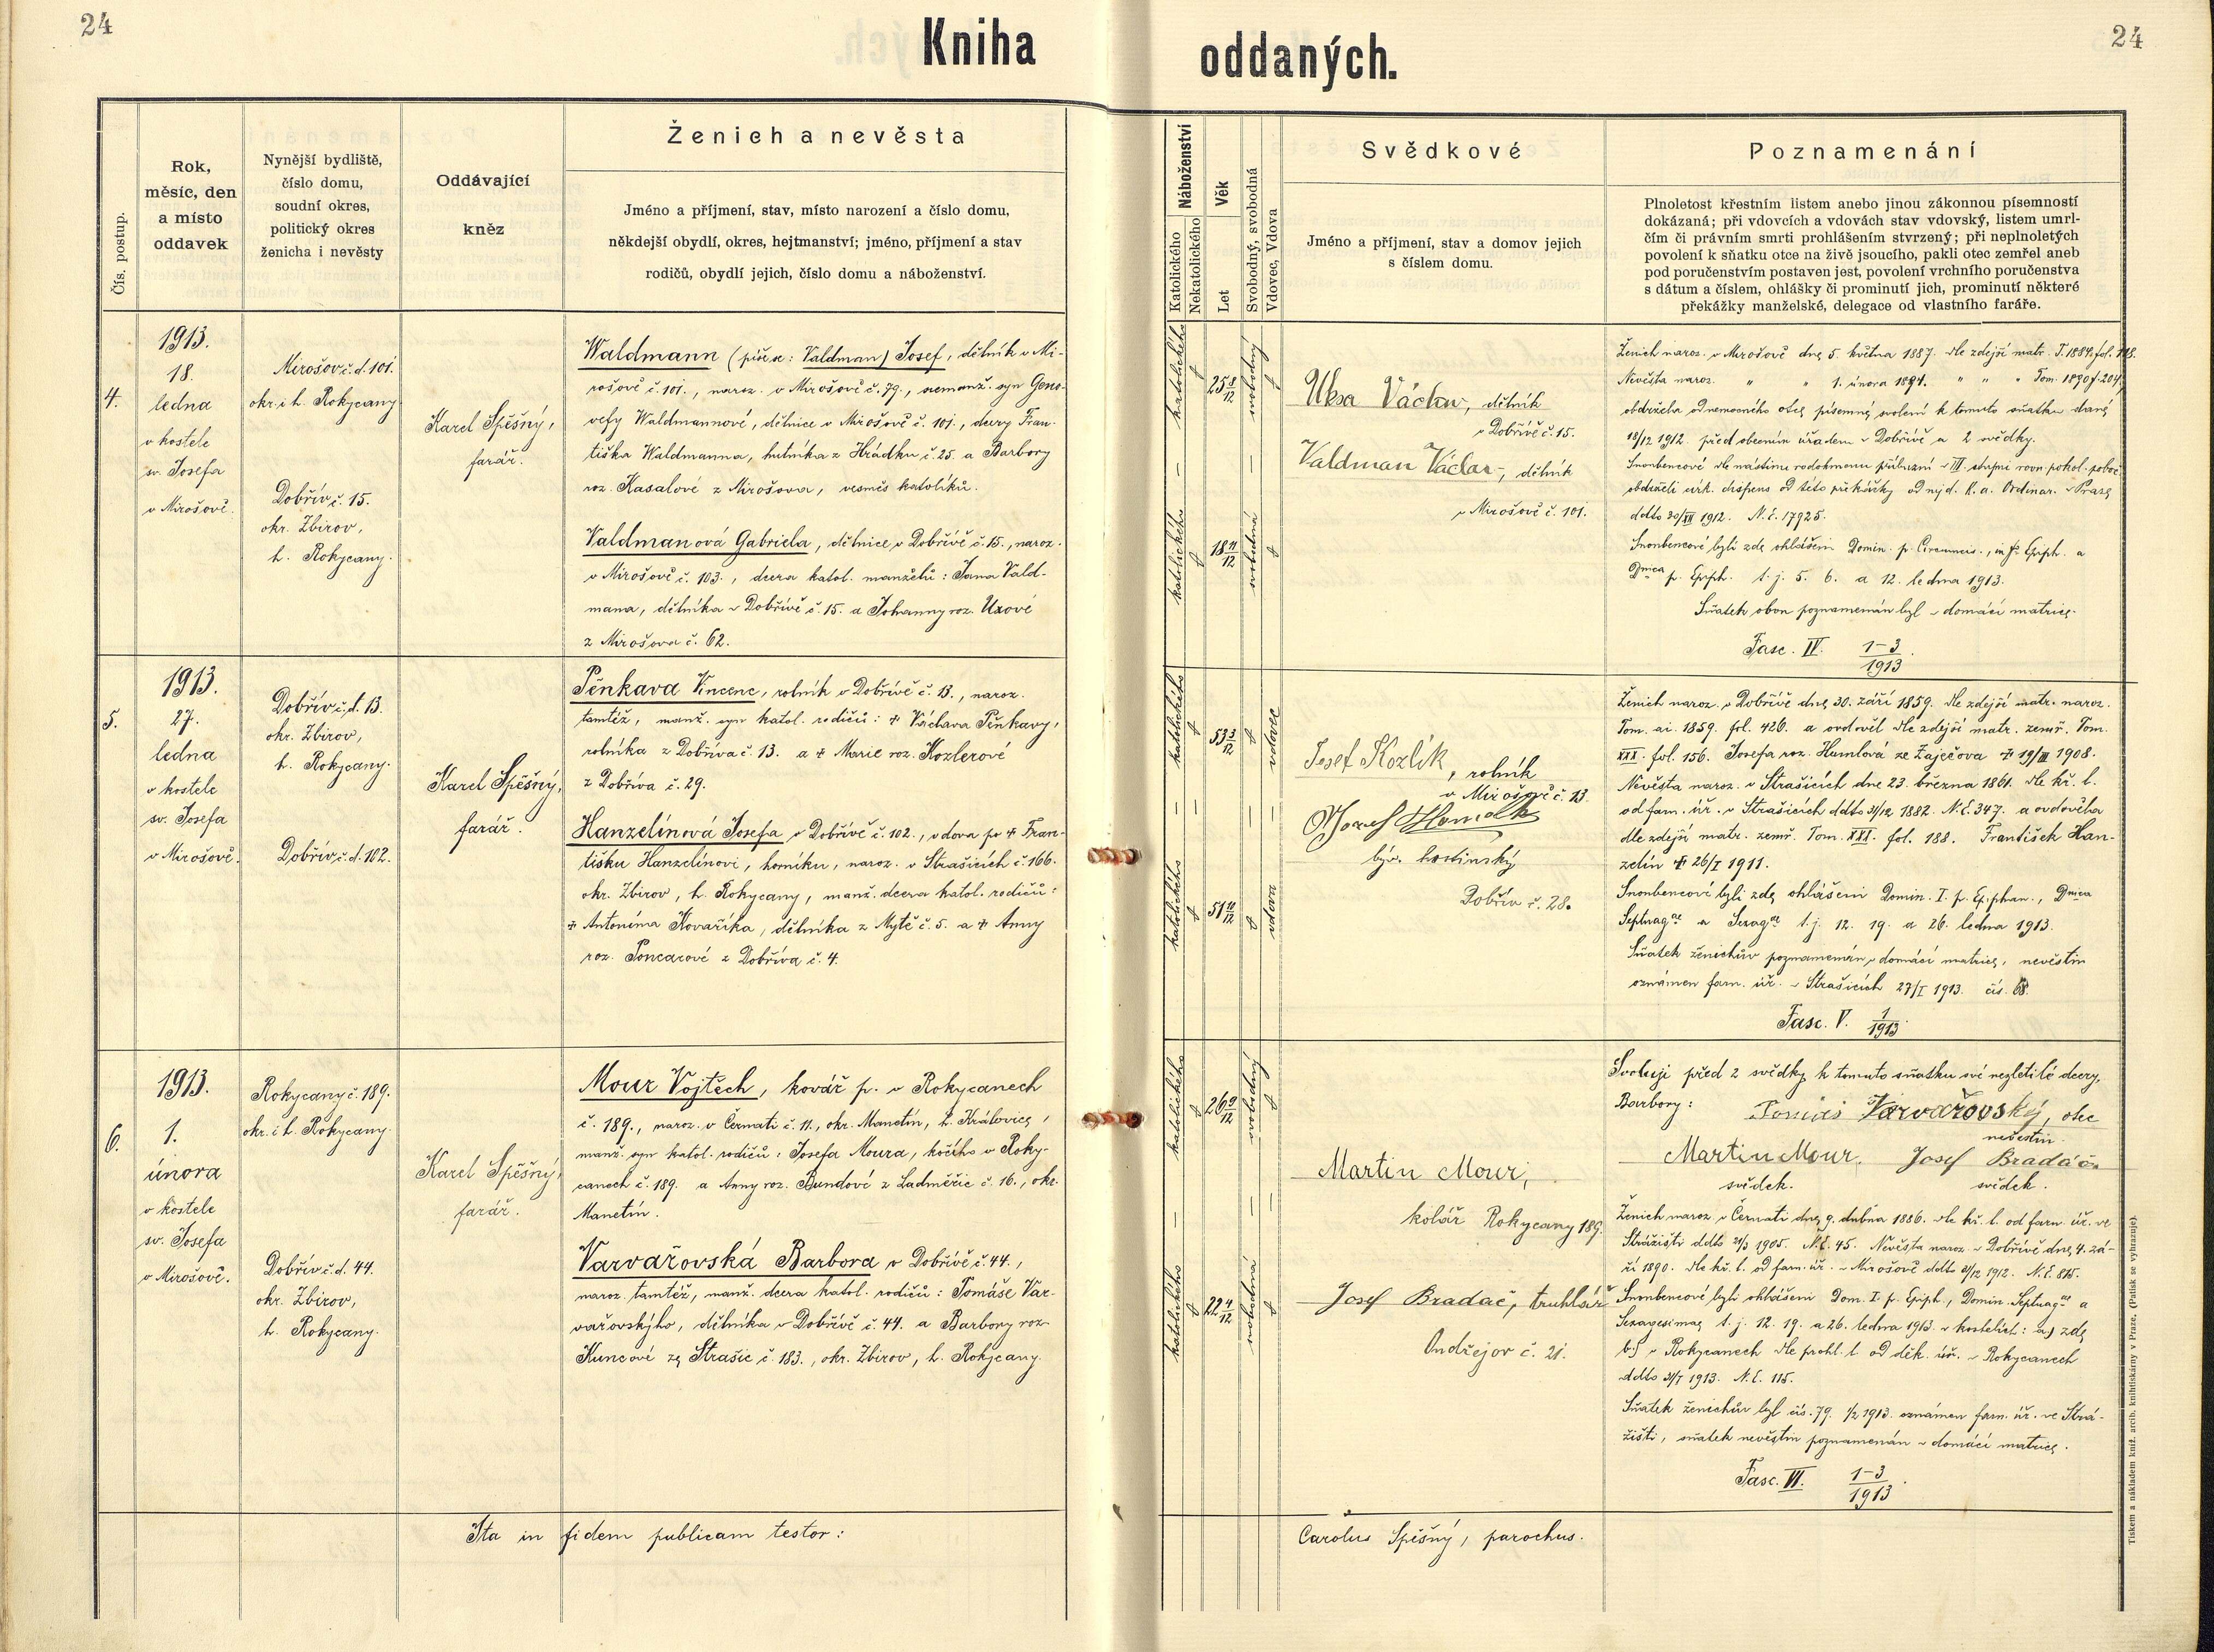 24
Kniha
oddaných.
24
Čís. postup.
Rok,
měsíc, den
a místo
oddavek
Nynější bydliště,
číslo domu,
soudní okres,
politický okres
ženicha i nevěsty
Oddávající
kněz
Ženich a nevěsta
Jméno a příjmení, stav, místo narození a číslo domu,
někdejší obydlí, okres, hejtmanství; jméno, příjmení a stav
rodičů, obydlí jejich, číslo domu a náboženství.
Náboženství
Katolického
Nekatolického
Věk
Let
Svobodný, svobodná
Vdovec, Vdova
Svědkové
Jméno a příjmení, stav a domov jejich
s číslem domu.
Poznamenání
Plnoletost křestním listem anebo jinou zákonnou písemností
dokázaná; při vdovcích a vdovách stav vdovský, listem umrl-
čím či právním smrti prohlášením stvrzený; při neplnoletých
povolení k sňatku otce na živě jsoucího, pakli otec zemřel aneb
pod poručenstvím postaven jest, povolení vrchního poručenstva
s dátum a číslem, ohlášky či prominutí jich, prominutí některé
překážky manželské, delegace od vlastního faráře.
4.
1913.
18.
ledna
v kostele
sv. Josefa
v Mirošově.
Mirošov č.d. 101.
okr. i h. Rokycany
Dobřív č. 15.
okr. Zbirov,
h. Rokycany.
Karel Spěšný,
farář.
Waldmann (píše se: Valdman) Josef, dělník v Mi-
rošově č. 101., naroz. v Mirošově č. 79., nemanž. syn Geno-
vefy Waldmannové, dělnice v Mirošově č. 101., dcery Fran-
tiška Waldmanna, hutníka z Hrádku č. 25. a Barbory
roz. Kasalové z Mirošova, vesměs katolíků.
Valdmanová Gabriela, dělnice v Dobřívě č. 15., naroz.
v Mirošově č. 103., dcera katol. manželů: Jana Vald-
mana, dělníka v Dobřívě č. 15. a Johanny roz. Uxové
z Mirošova č. 62.
katolického
25 8/12
svobodný
katolického
18 11/12
svobodná
Uksa Václav, dělník
v Dobřívě č. 15.
Valdman Václav, dělník
v Mirošově č. 101.
Ženich naroz. v Mirošově dne 5. května 1887. dle zdejší matr. T. 1884. fol.
Nevěsta naroz. " " 1. února 1894. " " " Tom. 1890 f. 204,
obdržela od nemocného otce písemné svolení k tomuto sňatku dané
18/12 1912. před obecním úřadem v Dobřívě a 2 svědky.
Snoubencové dle nástinu rodokmenu příbuzní v III. stupni rovn. pokol. poboč.
obdrželi círk. dispens od této překážky od nejd. k. a. Ordinar. v Praze
ddto 30/XII 1912. N.E. 17925.
Snoubencové byli zde ohlášeni Domin. p. Circumcis., in F. Epiph. a
Dnica p. Epiph. t. j. 5. 6. a 12. ledna 1913.
Sňatek obou poznamenán byl v domácí matrice.
Fasc. IV. 1-3/1913.
5.
1913.
27.
ledna
v kostele
sv. Josefa
v Mirošově.
Dobřív č.d. 13.
okr. Zbirov,
h. Rokycany.
Dobřív č.d. 102.
Karel Spěšný,
farář.
Pěnkava Vincenc, rolník v Dobřívě č. 13., naroz.
tamtéž, manž. syn katol. rodičů: † Václava Pěnkavy,
rolníka z Dobříva č. 13. a † Marie roz. Kozlerové
z Dobříva č. 29.
Hanzelínová Josefa v Dobřívě č. 102., vdova po † Fran-
tišku Hanzelínovi, horníku, naroz. v Strašicích č. 166.
okr. Zbirov, h. Rokycany, manž. dcera katol. rodičů:
† Antonína Kovaříka, dělníka z Mytě č. 5. a † Anny
roz. Poncarové z Dobříva č. 4.
katolického
53 3/12
vdovec
katolického
51 11/12
vdova
Josef Kozlík, rolník
v Mirošově č. 13.
býv. hostinský
Dobřív č. 28.
Ženich naroz. v Dobřívě dne 30. září 1859. dle zdejší matr. naroz.
Tom. ai. 1859. fol. 426. a ovdověl dle zdejší matr. zemř. Tom.
XXI. fol. 156. Josefa roz. Hamlová ze Zaječova † 19/III 1908.
Nevěsta naroz. v Strašicích dne 23. března 1861. dle kř. l.
od farn. úř. v Strašicích ddto 31/12 1882. N.E. 347. a ovdověla
dle zdejší matr. zemř. Tom. XXI. fol. 188. František Han-
zelín † 26/I 1911.
Snoubencové byli zde ohlášeni Domin. I. p. Epiphan., Dnica
Septuag. ae a Sexag. ae t. j. 12. 19. a 26. ledna 1913.
Sňatek ženichův poznamenán v domácí matrice, nevěstin
oznámen farn. úř. v Strašicích 27/I 1913. čís. 68.
Fasc. V. 1/1913
6.
1913.
1.
února
v kostele
sv. Josefa
v Mirošově.
Rokycany č. 189.
okr. i h. Rokycany.
Dobřív č.d. 44.
okr. Zbirov,
h. Rokycany.
Karel Spěšný,
farář.
Mour Vojtěch, kovář p. v Rokycanech
č. 189., naroz. v Černati č. 11., okr. Manetín, h. Kralovice,
manž. syn katol. rodičů: Josefa Moura, kočího v Roky-
canech č. 189. a Anny roz. Bundové z Ladměřic č. 16., okr.
Manetín.
Varvařovská Barbora v Dobřívě č. 44.,
naroz. tamtéž, manž. dcera katol. rodičů: Tomáše Var-
vařovskýho, dělníka v Dobřívě č. 44. a Barbory roz.
Kuncové ze Strašic č. 183., okr. Zbirov, h. Rokycany.
katolického
26 9/12
svobodný
katolického
22 4/12
svobodná
Martin Mour,
kolář Rokycany 189.
Josef Bradač, truhlář
Ondřejov č. 21.
Svoluji před 2 svědky k tomuto sňatku své nezletilé dcery,
Barbory: Tomáš Varvařovský, otec
nevěstin.
Martin Mour, Josef Bradáč
svědek. svědek.
Ženich naroz. v Černati dne 9. dubna 1886. dle kř. l. od farn. úř. ve
Strážišti ddto 21/3 1905. N.E. 45. Nevěsta naroz. v Dobřívě dne 4. zá-
ří 1890. dle kř. l. od farn. úř. v Mirošově ddto 31/12 1912. N.E. 815.
Snoubencové byli ohlášeni Dom. I. p. Epiph., Domin. Septuag. ae a
Sexagesimae t. j. 12. 19. a 26. ledna 1913. v kostelích: a) zde
b) v Rokycanech dle prohl. l. od děk. úř. v Rokycanech
ddto 31/I 1913. N.E. 115.
Sňatek ženichův byl čís. 79. 1/2 1913. oznámen farn. úř. ve Strá-
žišti, sňatek nevěstin poznamenán v domácí matrice.
Fasc. VI. 1-3/1913.
Ita in fidem publicam testor:
Carolus Spěšný, parochus.
Tiskem a nákladem kníž. arcib. knihtiskárny v Praze. (Patisk se vyhrazuje).